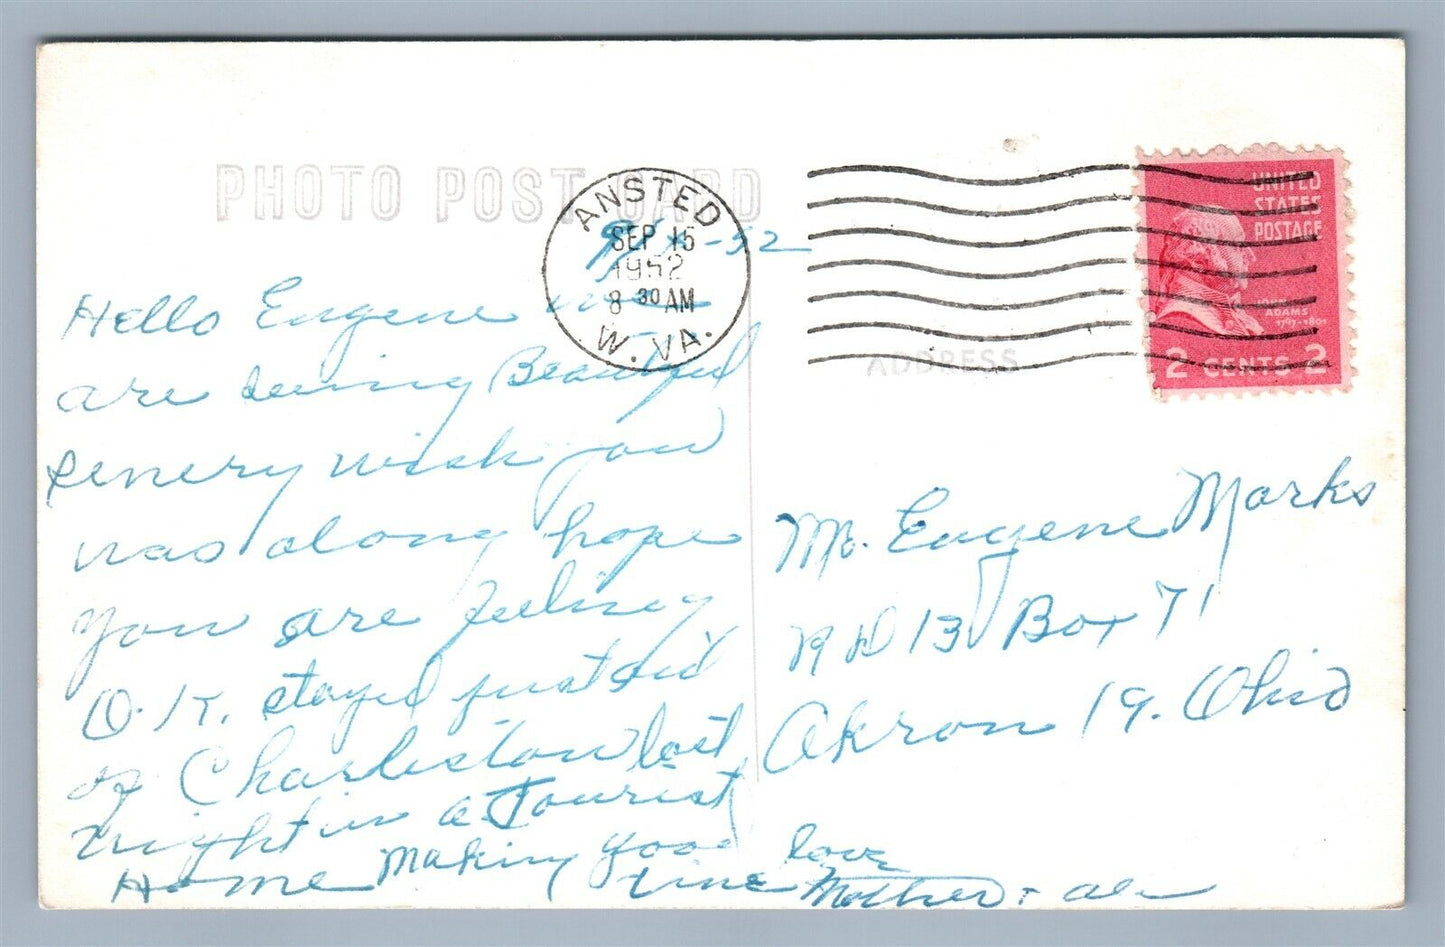 PHOTO POST CARD
ANSTED
SEP 15
1952
8 30 AM
W. VA.
UNITED
STATES
POSTAGE
JOHN
ADAMS
1797-1801
2 CENTS 2
ADDRESS
-52
Hello Eugene
are seeing Beautiful
senery wish you
was along hope
you are feeling
O.K. stayed just out sid
of Charleston last
night in a Tourist
Home Making good
time
love
Mother
Mr. Eugene Marks
R D 13 Box 71
Akron 19. Ohio